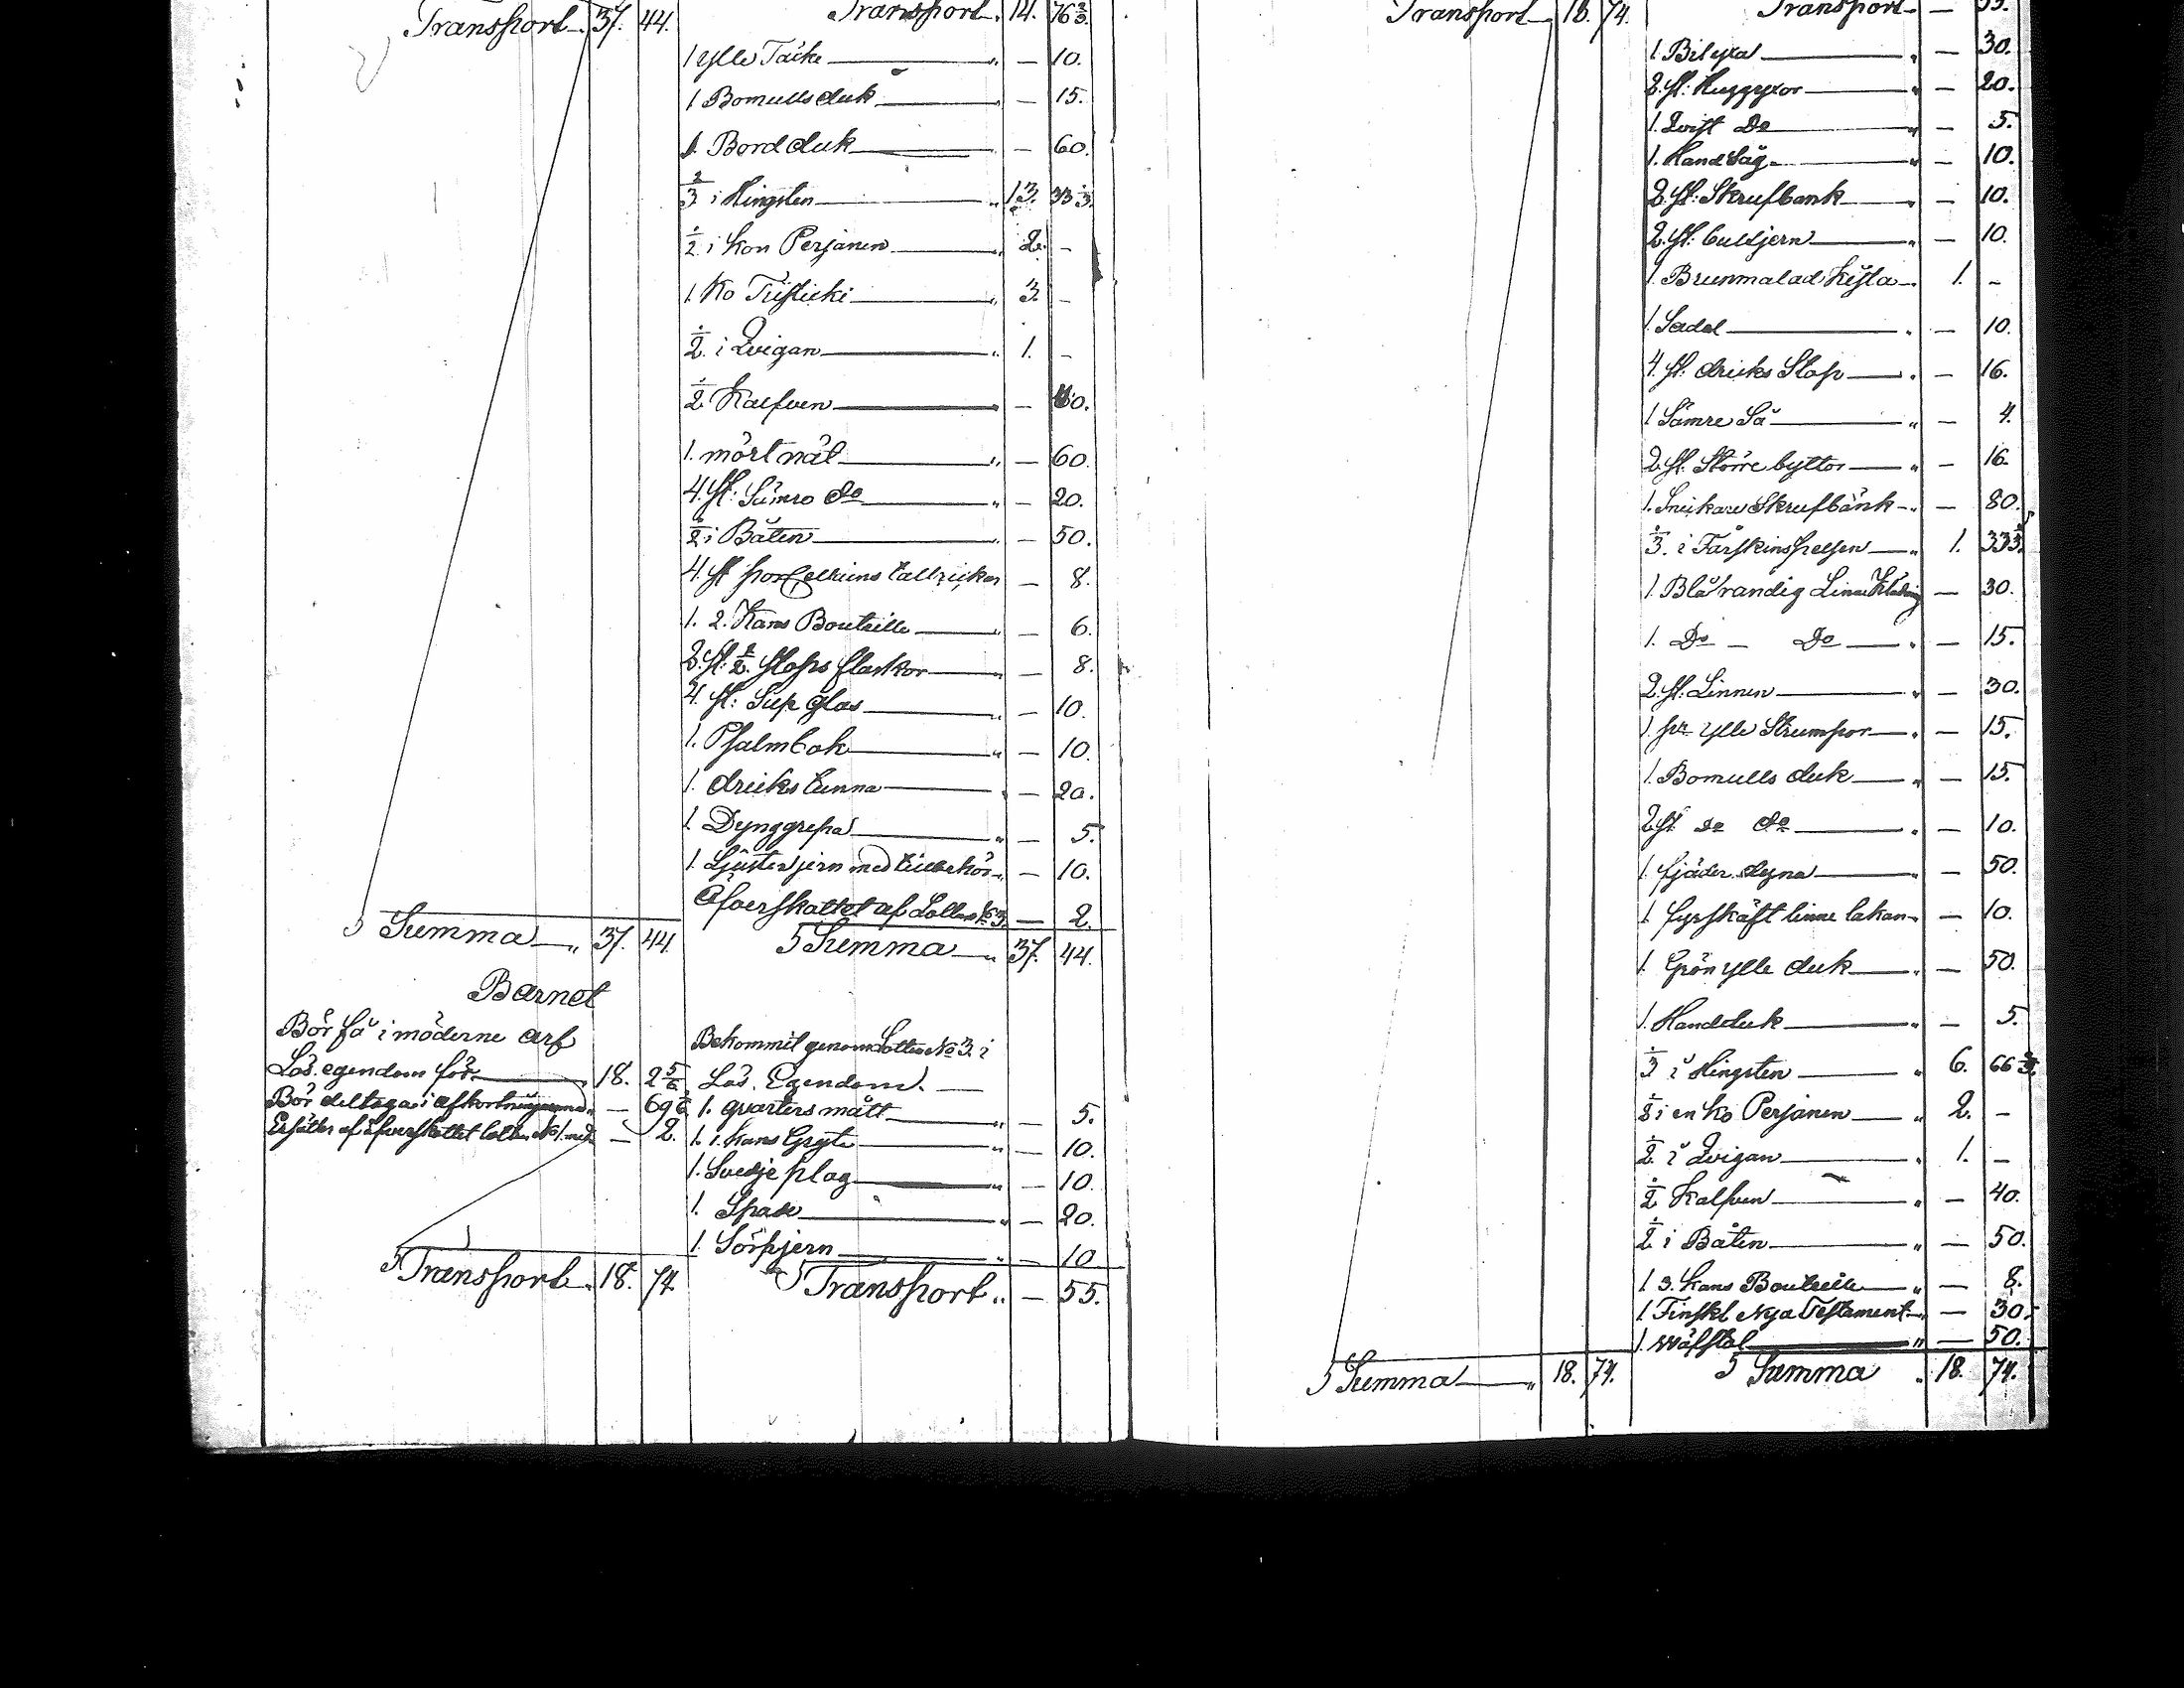 Transport 37. 44.
Transport 14. 76 2/3
1 ylle Täcke " — 10.
1 Bomulls duk " — 15.
1. Bord duk " — 60.
2/3 i Hingsten " 13. 33 1/3.
1/2 i kon Perjanen " 2. —
1. Ko Tusticki " 3. —
1/2. i Qvigan " 1. —
1/2 Kalfven " — 60.
1. mört nät " — 60.
4. st: Sämre do " — 20.
1/2 i Båten " — 50.
4. st porcellains tallrickar — 8.
1. 2. Kans Bouteille " — 6.
2. st: 1/2. stops flaskor " — 8.
4. st: Sup glas " — 10.
1. Psalmbok " — 10.
1. dricks tunna " — 20.
1. Dynggrepa " — 5.
1. Ljusterjern med tillbehör " — 10.
Öfverskottet af Lotten No 3. — 2.
S Summa " 37. 44.
S Summa " 37. 44.
Barnet
Bör få i möderne arf
Lös. egendom för 18. 2 5/6
Bör deltaga i afkortningarna " — 69 1/6
Ersätter af öfverskottet lotten No 1. med — 2.
S Transport " 18. 74.
Bekommit genom Lotten No 3. i
Lös. Egendom. —
1. qvarters mått " — 5.
1. 1. kans Gryta " — 10.
1. Svedje plog " — 10.
1. Spade " — 20.
1. Sörpjern " — 10
S Transport " — 55.
Transport " 18. 74.
Transport " — 55.
1. Bilyxa " — 30.
2. st: Huggyxor " — 20.
1. Qvist Do " — 5.
1. Hand Såg " — 10.
2. st: Skrufbank " — 10.
2. st: bultjern " — 10.
1. Brunmalad Kista " 1. —
1. Sadel " — 10.
4. st: dricks Stop " — 16.
1 Sämre Så " — 4.
2. st. Större byttor " — 16.
1. Snickare Skrufbänk " — 80.
1/3. i Fårskinspelsen " 1. 33 1/3.
1. Blå randig Linne Klädning — 30.
1. Do — Do " — 15.
2. st: Linnen " — 30.
1. par ylle Strumpor " — 15.
1. Bomulls duk " — 15.
2 st do do " — 10.
1. fjäder dyna " — 50.
1. fyrskäft linne lakan " — 10.
1. Grön ylle duk " — 50.
1. Handduk " — 5.
1/3 i Hingsten " 6. 66 2/3.
1/2 i en ko Perjanen " 2. —
1/2 i Qvigan " 1. —
1/2 Kalfven " — 40.
1/2 i Båten " — 50.
1 3. kans Bouteille " — 8.
1. Finskt Nya Testament " — 30.
1. Wäfstol " — 50.
S Summa " 18. 74.
S Summa " 18. 74.